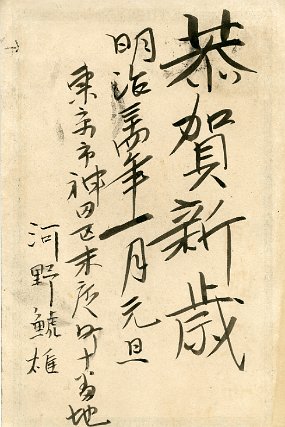 恭賀新歳
明治卅四年一月元旦
東京市神田区末廣町十番地
河野鯱雄